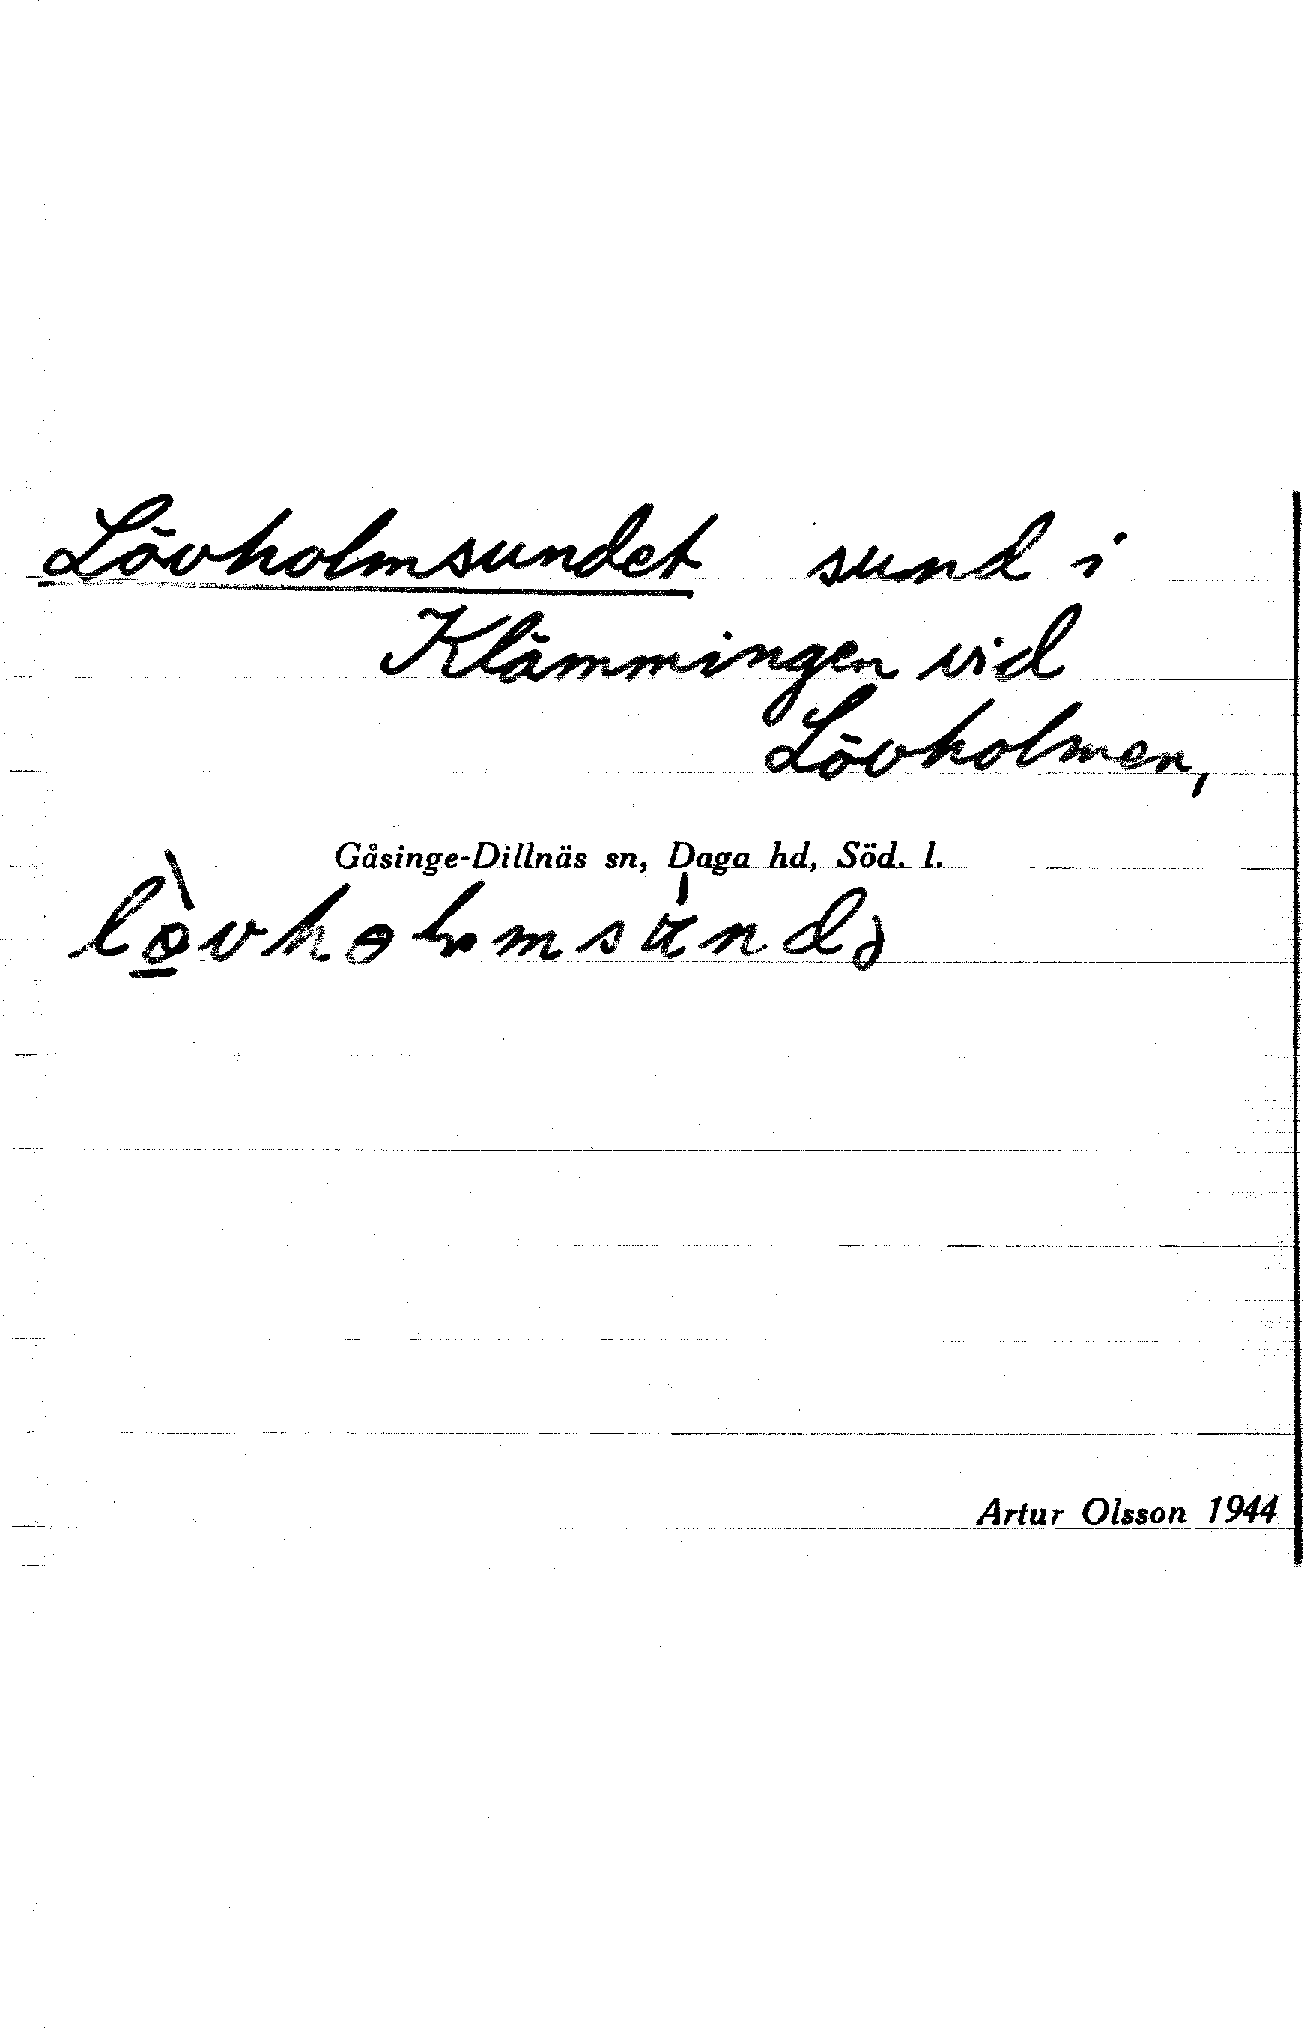 Lövholmsundet sund i
Klämmingen vid
Lövholmen,
Gåsinge-Dillnäs sn, Daga hd, Söd. l.
Artur Olsson 1944